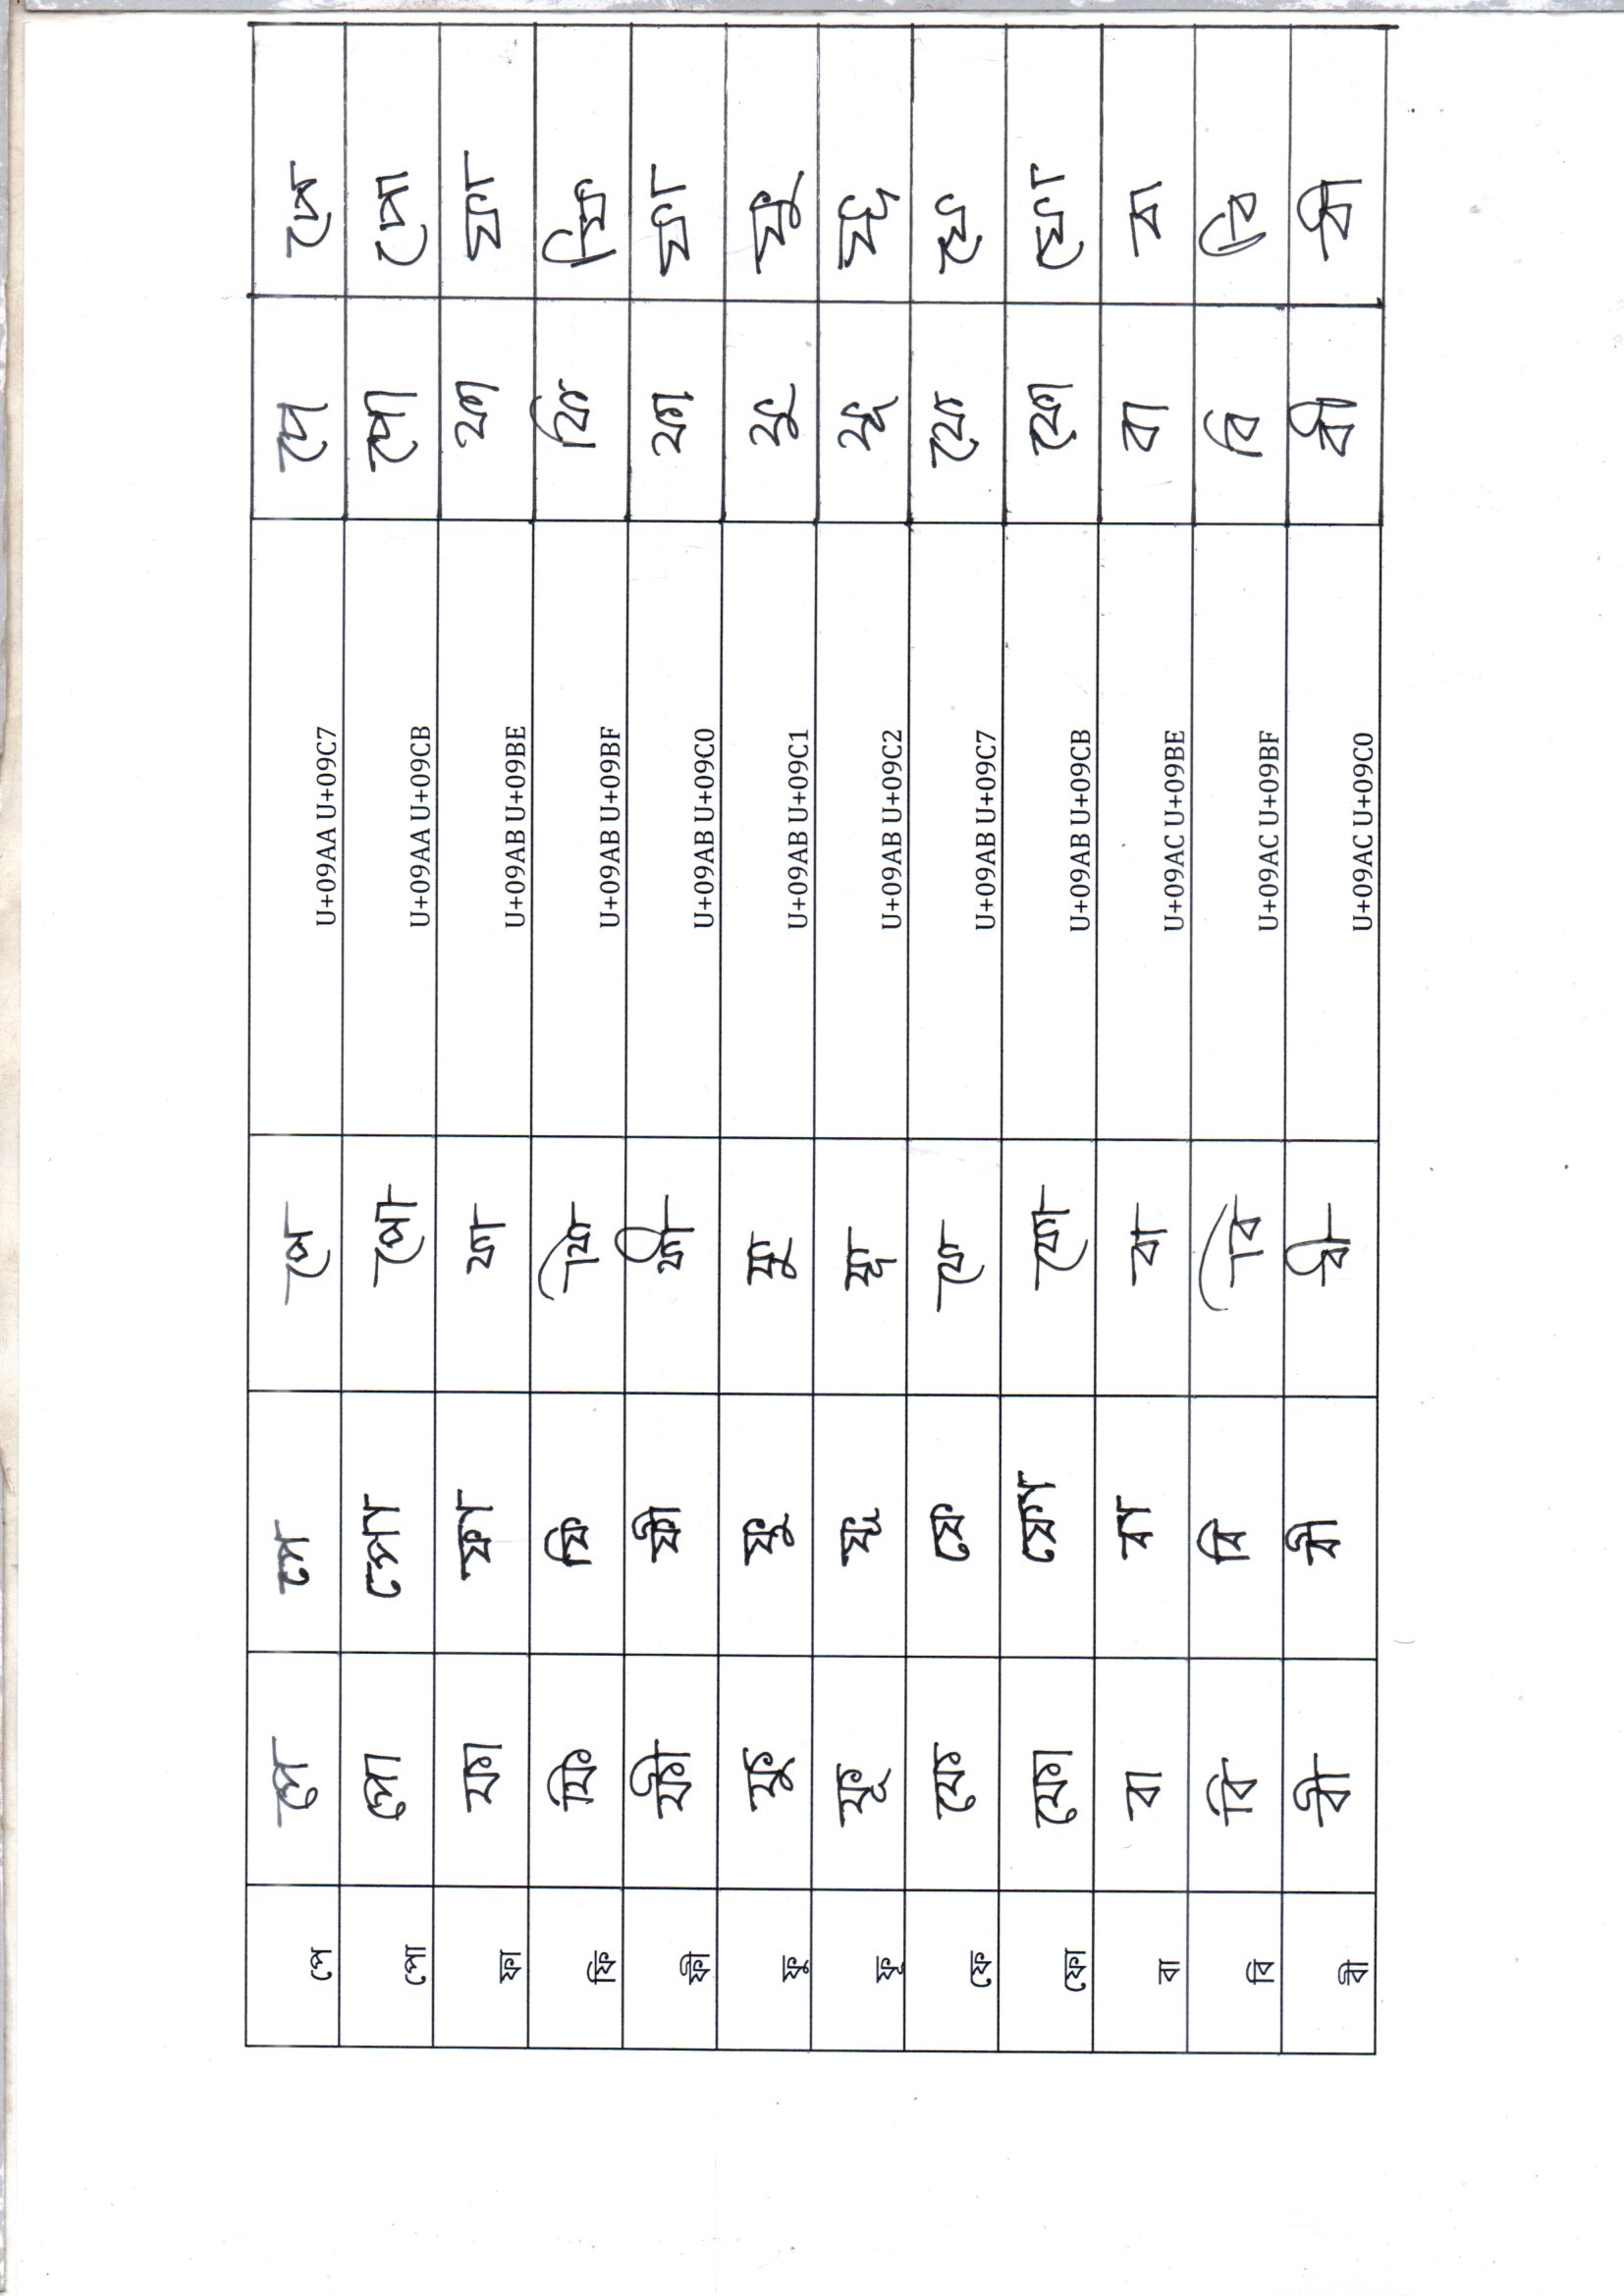 পে পে পে পে U+09AA U+09C7 পে পে
পো পো পো পো U+09AA U+09CB পো পো
ফা ফা ফা ফা U+09AB U+09BE ফা ফা
ফি ফি ফি ফি U+09AB U+09BF ফি ফি
ফী ফী ফী ফী U+09AB U+09C0 ফা ফা
ফু ফু ফু ফু U+09AB U+09C1 ফু ফু
ফূ ফূ ফূ ফূ U+09AB U+09C2 ফূ ফূ
ফে ফে ফে ফে U+09AB U+09C7 ফে ফে
ফো ফো ফো ফো U+09AB U+09CB ফো ফো
বা বা বা বা U+09AC U+09BE বা বা
বি বি বি বি U+09AC U+09BF বি বি
বী বী বী বী U+09AC U+09C0 বী বী